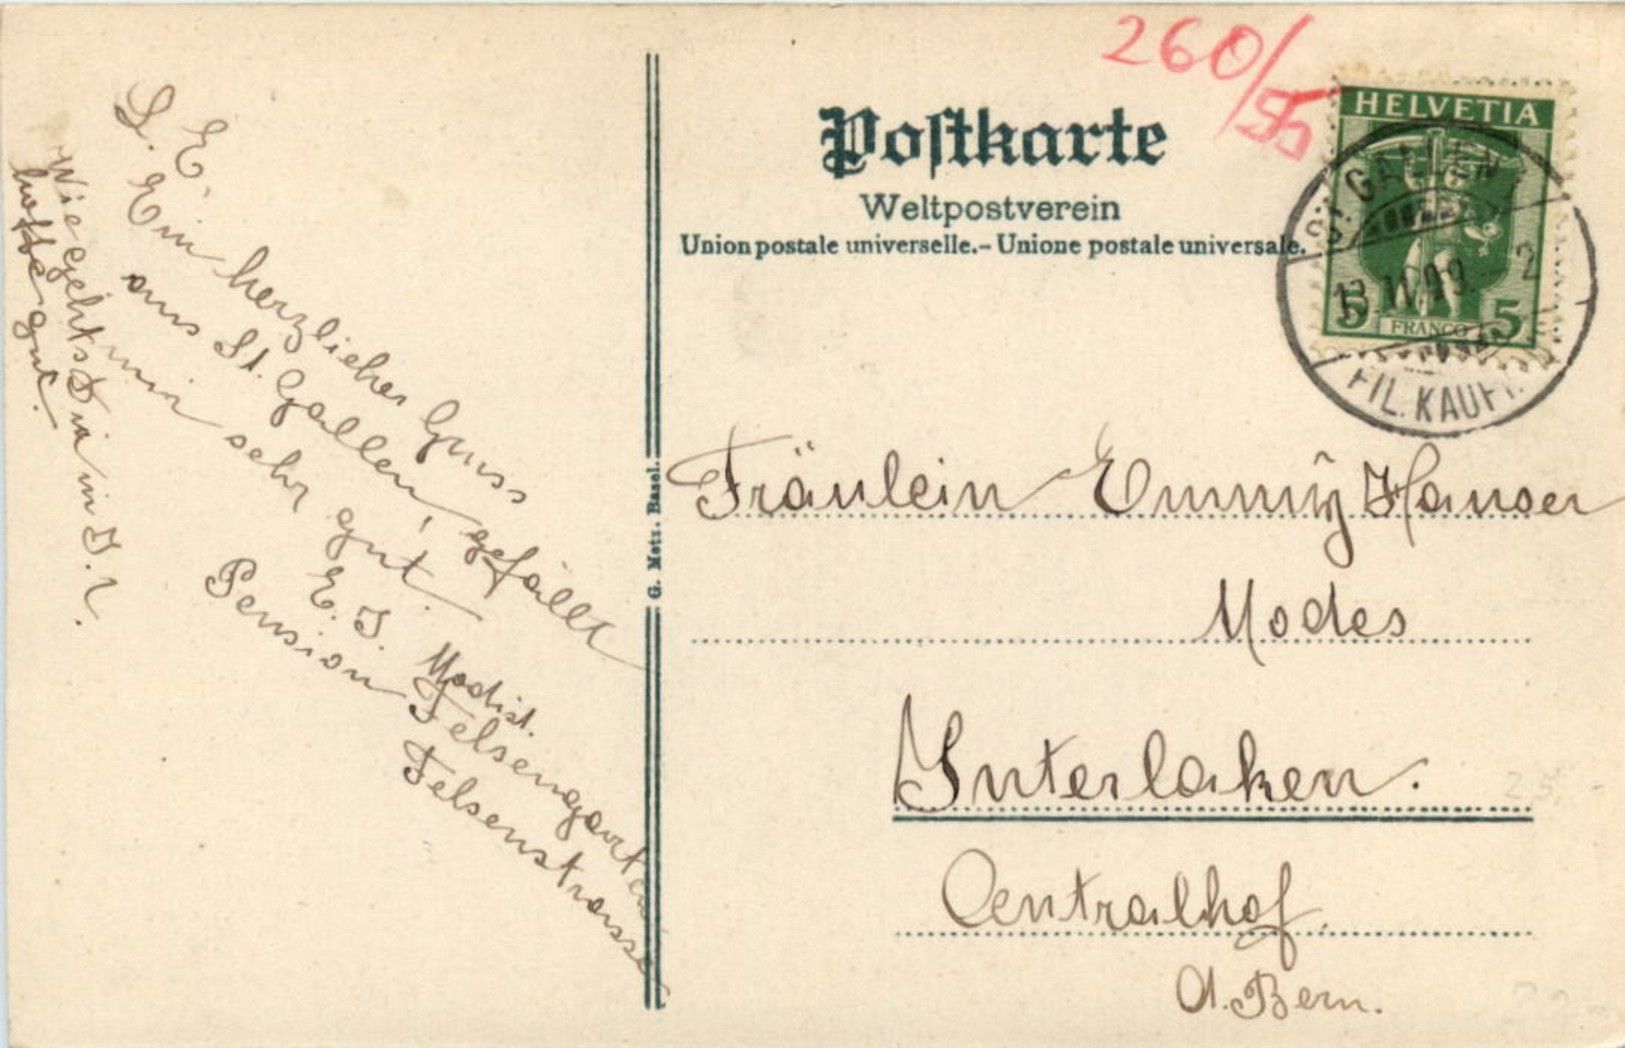 260/55
Postkarte
Weltpostverein
Union postale universelle.– Unione postale universale.
HELVETIA
5 FRANCO 5
ST. GALLEN
13.IV.09 – 2
FIL. KAUFH.
L. E.
Ein herzlicher Gruss
aus St. Gallen, gefällt
mir sehr gut.
E. I. Modist.
Pension Felsengarten
Felsenstrasse
Wie geht's Dir in I.?
hoffe gut.
G. Metz. Basel.
Fräulein Emmy Hauser
Modes
Interlaken.
Centralhof
Ct. Bern.